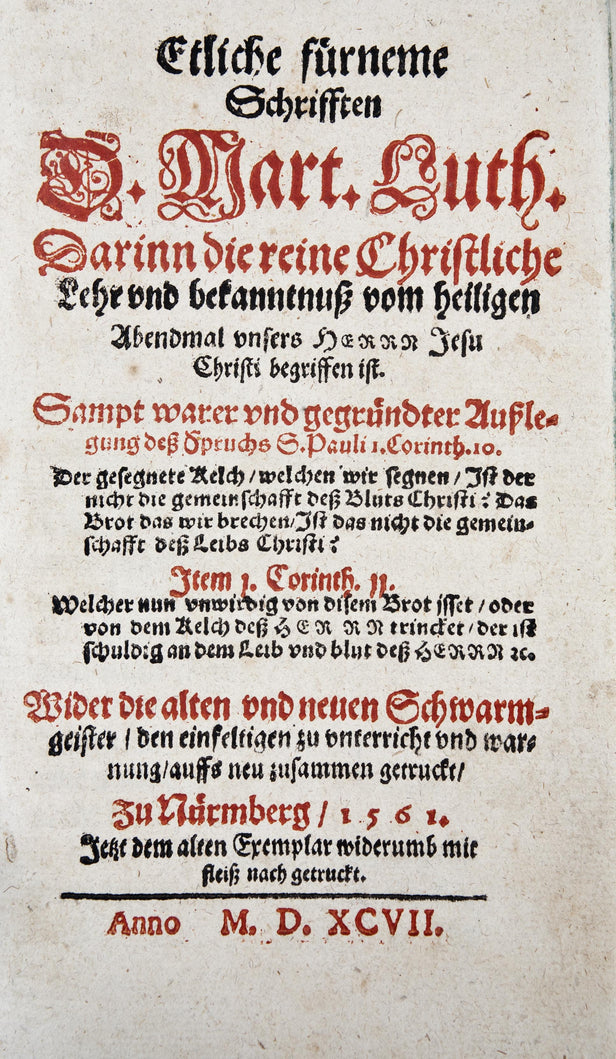 Etliche fürneme
Schrifften
D. Mart. Luth.
Darinn die reine Christliche
Lehr vnd bekanntnuß vom heiligen
Abendmal vnsers HERRN Jesu
Christi begriffen ist.
Sampt warer vnd gegründter Außle-
gung deß Spruchs S. Pauli 1. Corinth. 10.
Der gesegnete Kelch / welchen wir segnen / Ist der
nicht die gemeinschafft deß Bluts Christi? Das
Brot das wir brechen / Ist das nicht die gemein-
schafft deß Leibs Christi?
Item 1. Corinth. 11.
Welcher nun vnwirdig von disem Brot isset / oder
von dem Kelch deß HERRN trincket / der ist
schuldig an dem Leib vnd blut deß HERRN ꝛc.
Wider die alten vnd neuen Schwarm-
geister / den einfeltigen zu vnterricht vnd war-
nung / auffs neu zusammen getruckt /
Zu Nürmberg / 1561.
Jetzt dem alten Exemplar widerumb mit
fleiß nach getruckt.
Anno M. D. XCVII.